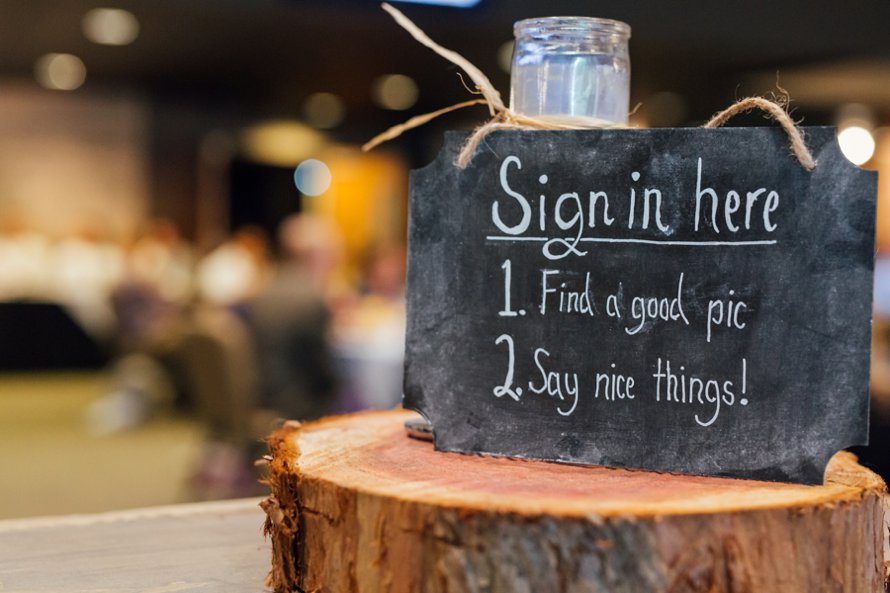 Sign in here
1. Find a good pic
2. Say nice things!